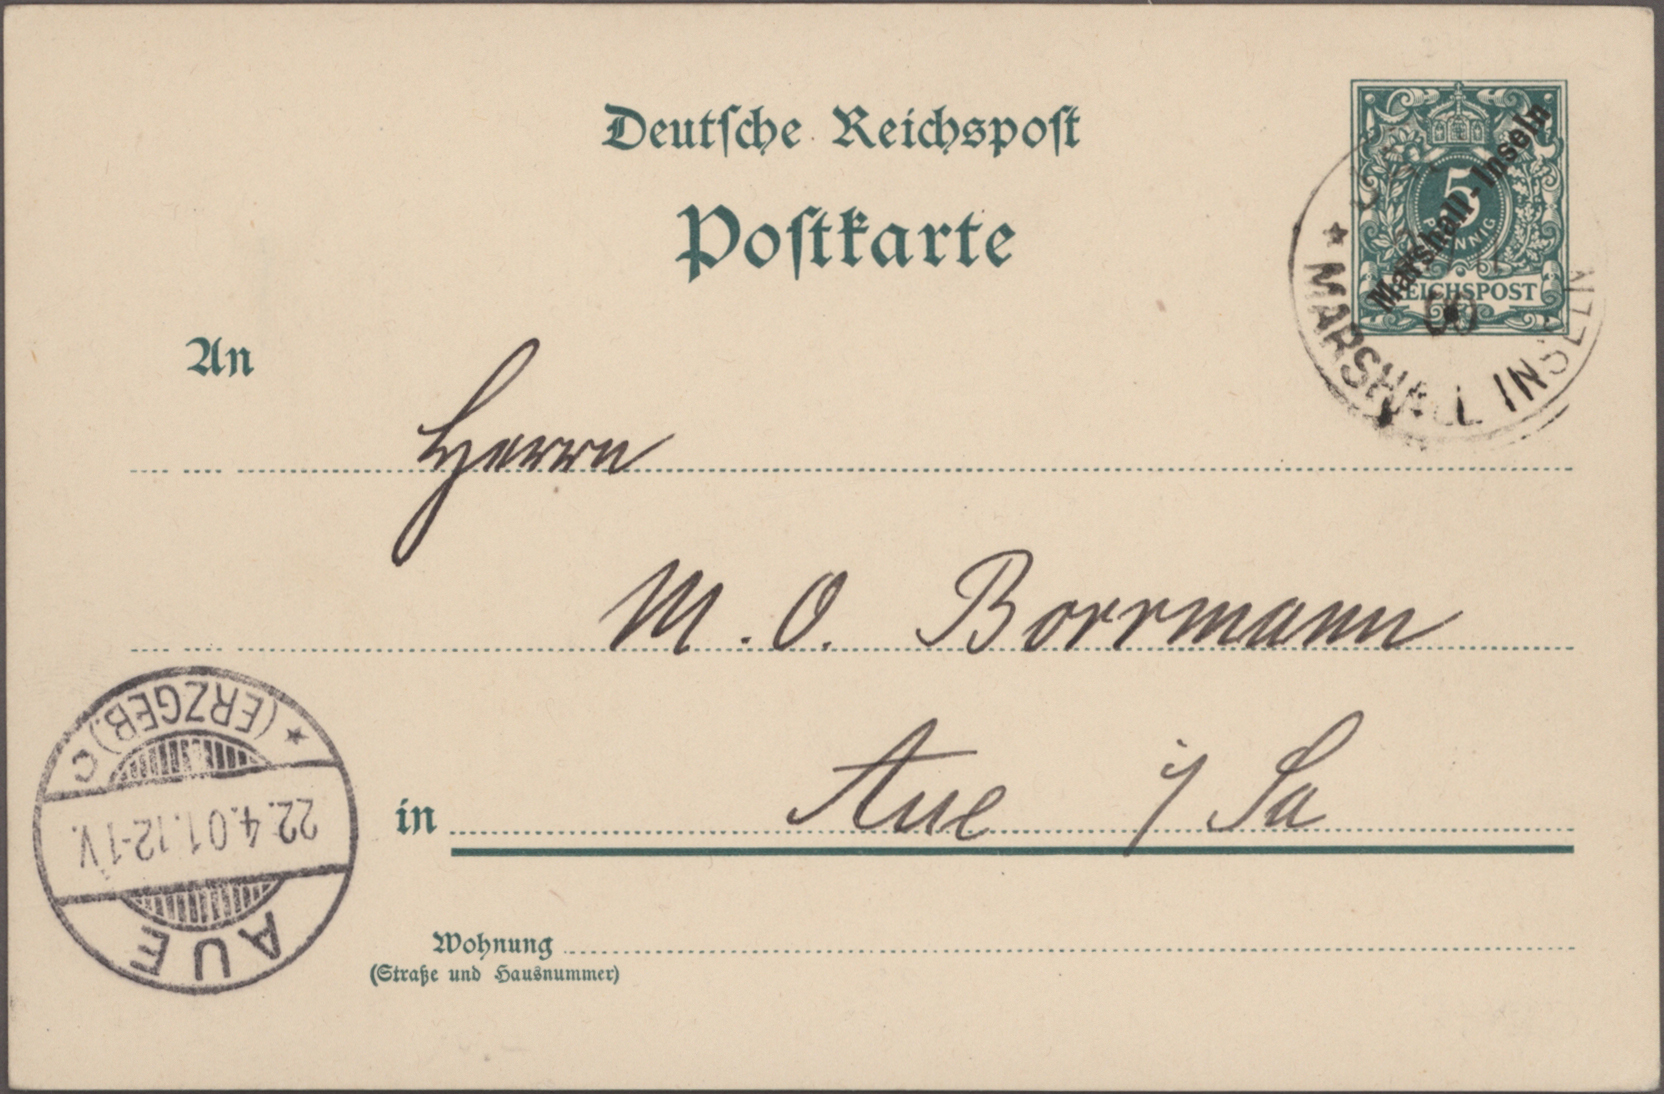 Deutsche Reichspost
Postkarte
5
PFENNIG
REICHSPOST
Marshall-Inseln
MARSHALL INSELN
An
Herrn
M. O. Borrmann
in Aue i/Sa
Wohnung
(Straße und Hausnummer)
AUE
22.4.01.12-1V.
(ERZGEB.) C